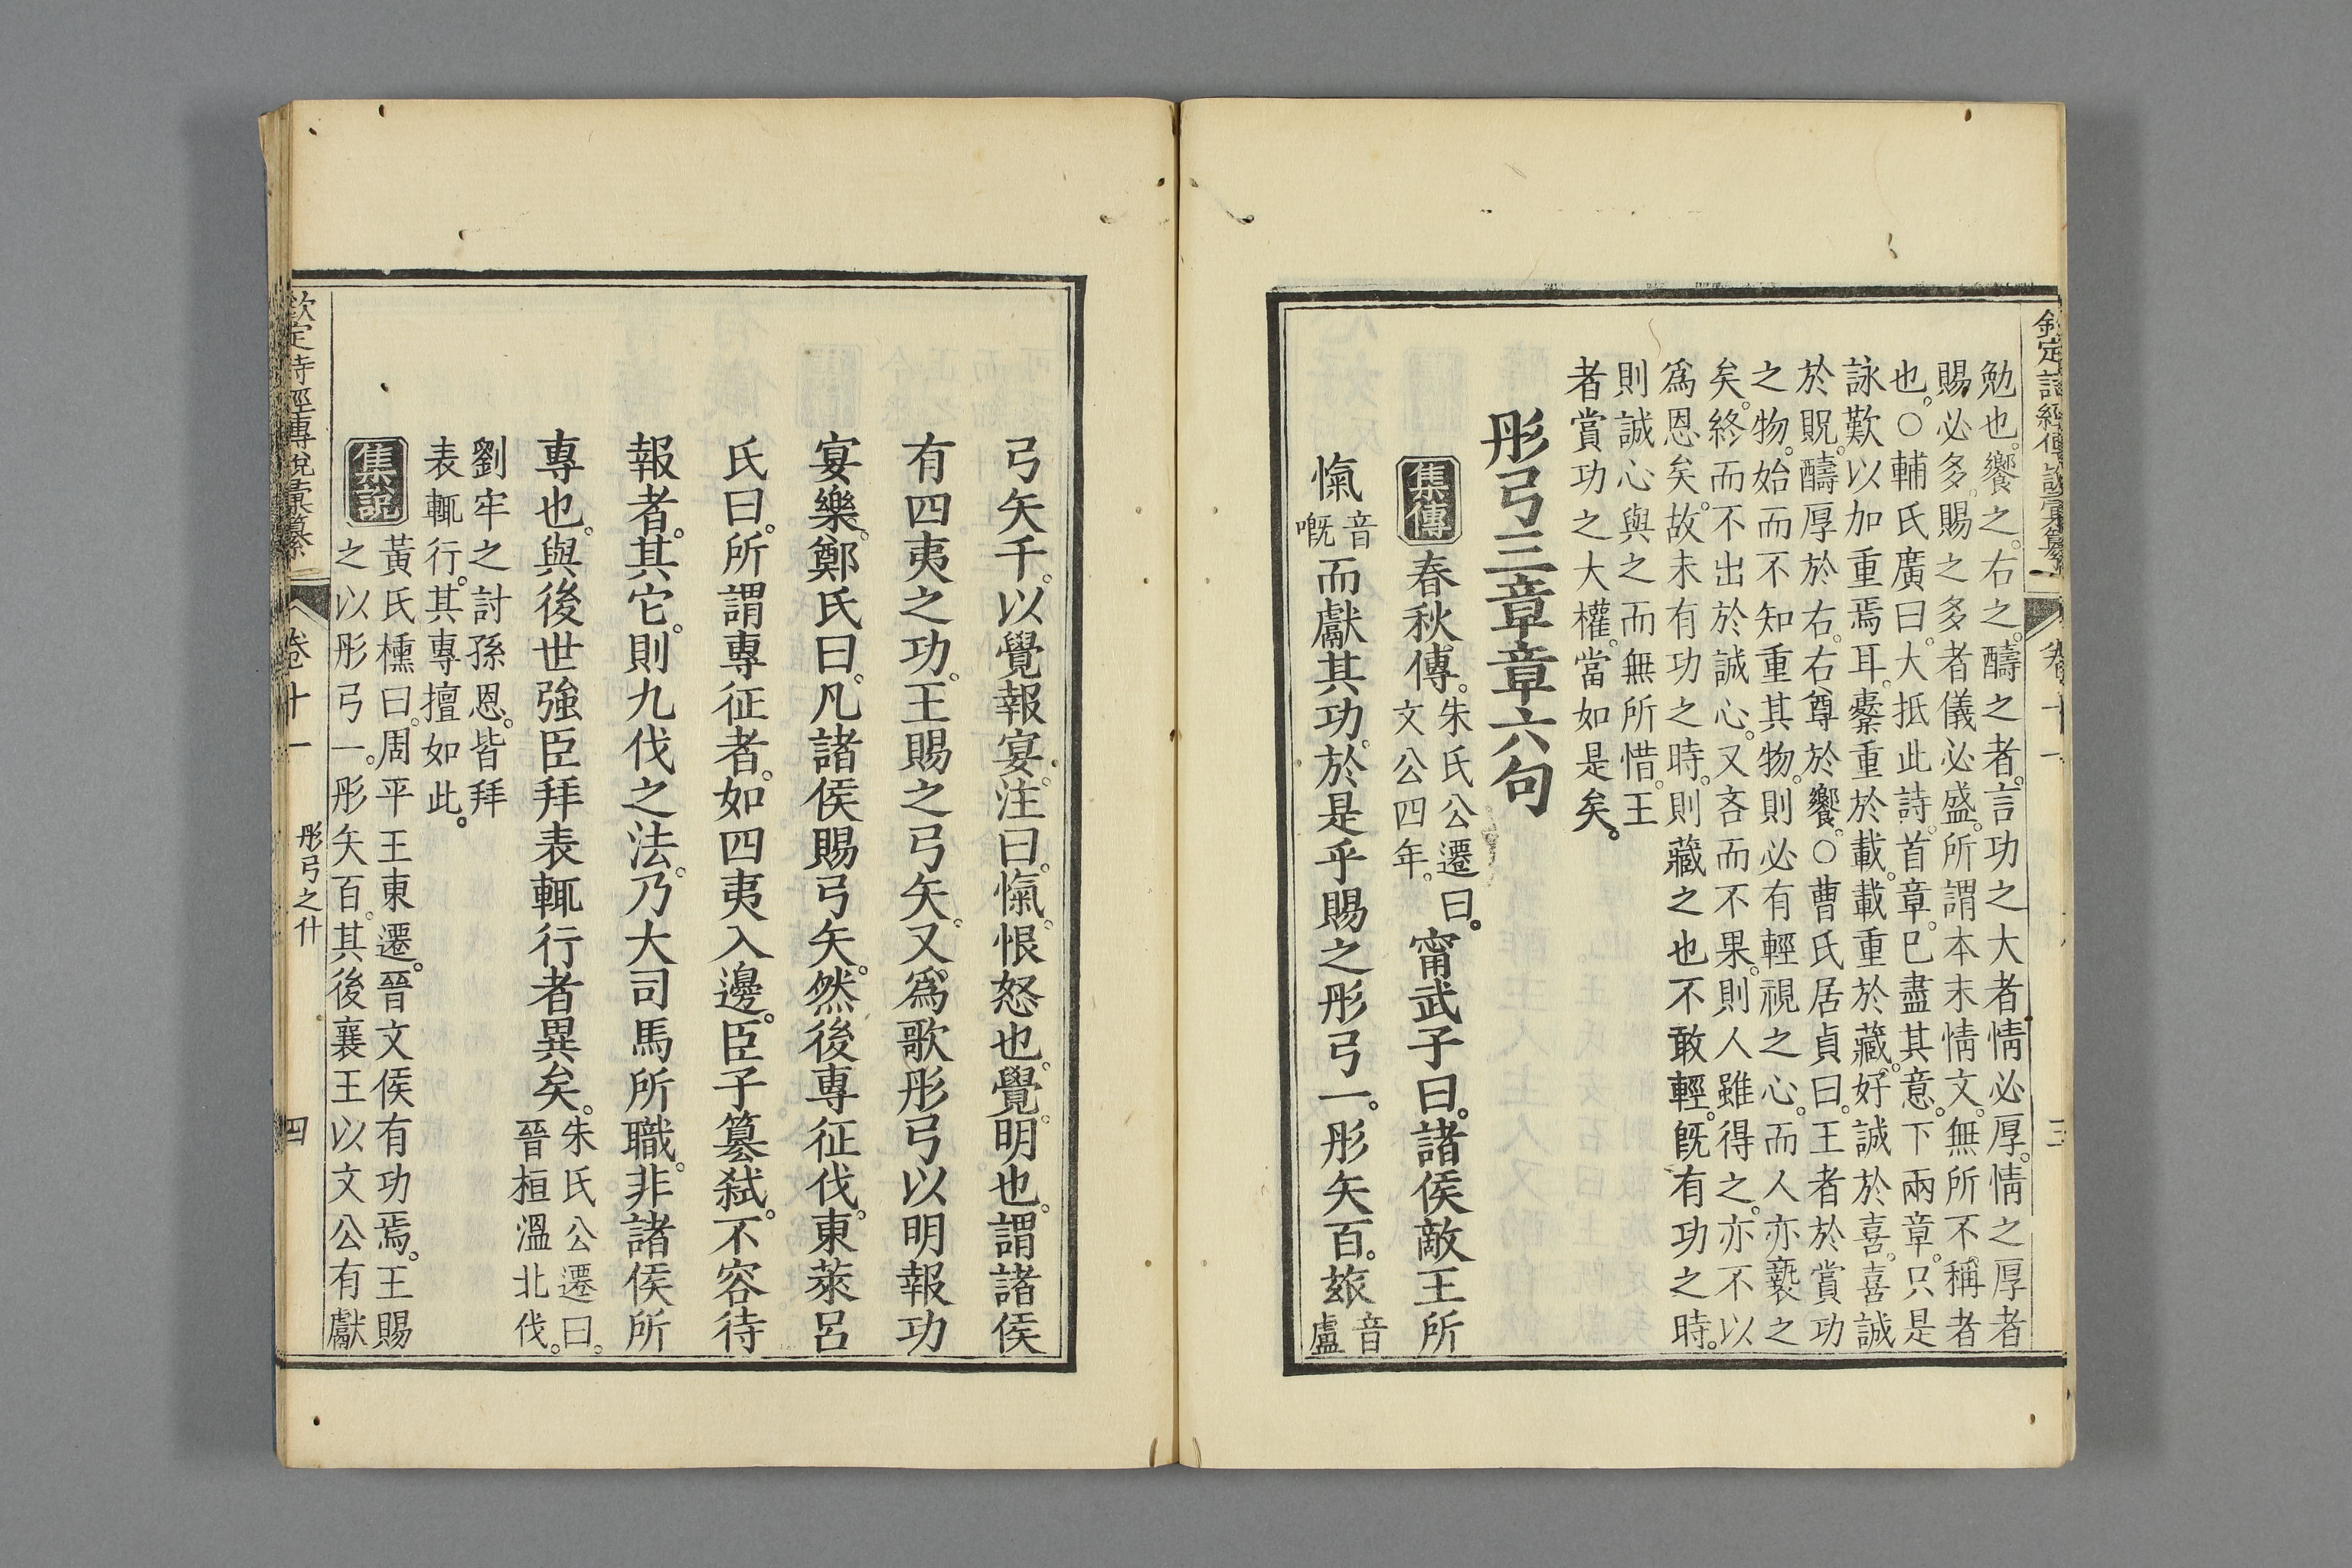 欽定詩經傳說彙纂 卷十一 三
勉也。饗之。右之。醻之者。言功之大者情必厚。情之厚者
賜必多。賜之多者儀必盛。所謂本末情文。無所不稱者
也。○輔氏廣曰。大抵此詩。首章。已盡其意。下兩章。只是
詠歎以加重焉耳。櫜重於載。載重於藏。好誠於喜。喜誠
於貺。醻厚於右。右尊於饗。○曹氏居貞曰。王者於賞功
之物。始而不知重其物。則必有輕視之心。而人亦褻之
矣。終而不出於誠心。又吝而不果。則人雖得之。亦不以
爲恩矣。故未有功之時。則藏之也不敢輕。旣有功之時。
則誠心與之而無所惜。王
者賞功之大權。當如是矣。
彤弓三章章六句
集傳 春秋傳。朱氏公遷曰。文公四年。甯武子曰。諸侯敵王所
愾音嘅而獻其功。於是乎賜之彤弓一。彤矢百。玈音盧
弓矢千。以覺報宴。注曰。愾。恨怒也。覺。明也。謂諸侯
有四夷之功。王賜之弓矢。又爲歌彤弓以明報功
宴樂。鄭氏曰。凡諸侯賜弓矢。然後專征伐。東萊呂
氏曰。所謂專征者。如四夷入邊。臣子簒弑。不容待
報者。其它。則九伐之法。乃大司馬所職。非諸侯所
專也。與後世強臣拜表輒行者異矣。朱氏公遷曰。晉桓溫北伐。
劉牢之討孫恩。皆拜
表輒行。其專擅如此。
集說 黃氏櫄曰。周平王東遷。晉文侯有功焉。王賜
之以彤弓一。彤矢百。其後襄王以文公有獻
欽定詩經傳說彙纂 卷十一 彤弓之什 四